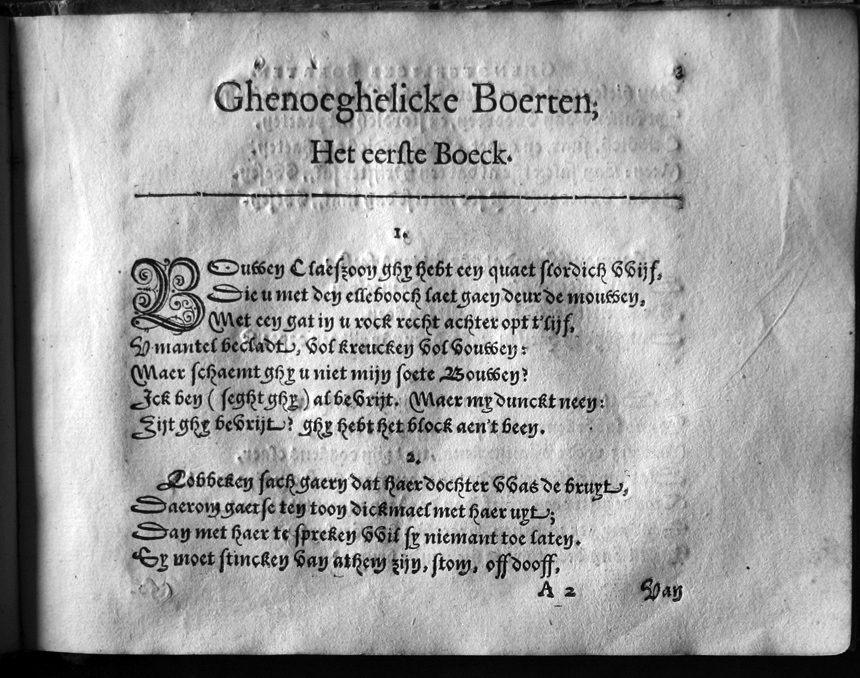 3
Ghenoeghelicke Boerten;
Het eerste Boeck.
1.
BOuwen Claeszoon ghy hebt een quaet slordich Wijf,
Die u met den ellebooch laet gaen deur de mouwen,
Met een gat in u rock recht achter opt t'lijf,
V mantel becladt, vol kreucken vol vouwen:
Maer schaemt ghy u niet mijn soete Bouwen?
Ick ben (seght ghy) al bevrijt. Maer my dunckt neen:
Zijt ghy bevrijt? ghy hebt het block aen't been.
2.
Lobbeken sach gaern dat haer dochter Was de bruyt,
Daerom gaetse ten toon dickmael met haer uyt;
Dan met haer te spreken Wil sy niemant toe laten.
Sy moet stincken van athem zijn, stom, off dooff,
A 2
Van